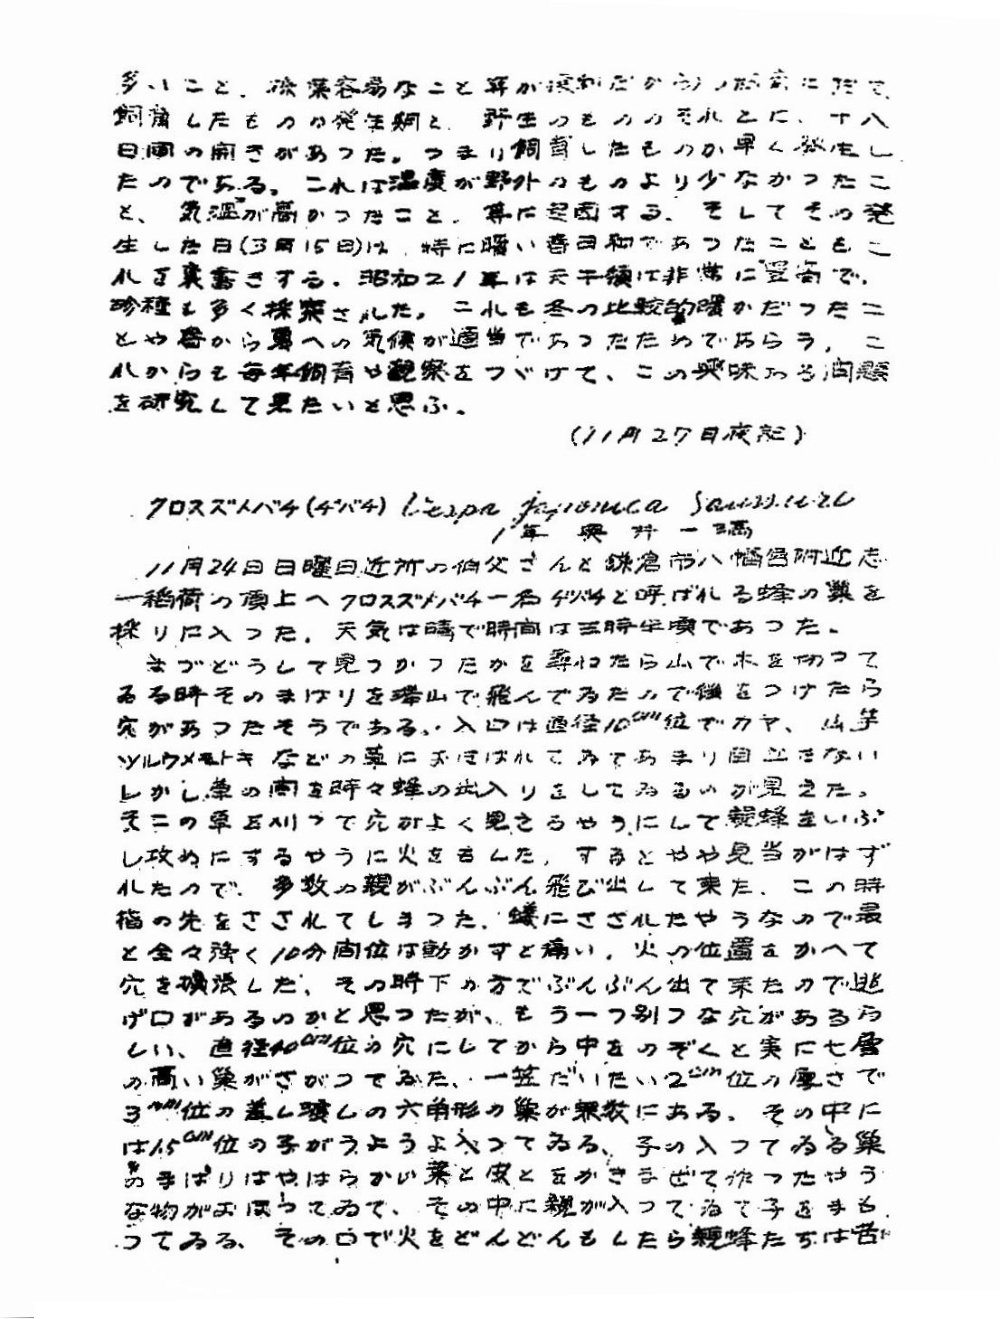 多いこと、採葉容易なこと等が便利だから
飼育したものの発生期と、野生のもののそれとに、十八
日間の開きがあつた。つまり飼育したものが早く発生し
たのである。これは湿度が野外のものより少なかつたこ
と、気温が高かつたこと、等に起因する。そしてその発
生した日(3月15日)は、特に暖い春日和であつたこともこ
れを裏書きする。昭和21年は天干領は非常に豊富で、
珍種も多く採集された。これも冬の比較的暖かだつたこ
とや春から夏への気候が適当であつたためであらう。こ
れからも毎年飼育や観察をつゞけて、この興味ある問題
を研究して見たいと思ふ。
(11月27日夜記)
クロスズメバチ(ヂバチ) Vespa japonica Saussure
1年 奥井一満
11月24日日曜日近所の伯父さんと鎌倉市八幡宮附近志
一稲荷の頂上へクロスズメバチ一名ヂバチと呼ばれる蜂の巣を
採りに入つた。天気は晴で時間は三時半頃であつた。
まづどうして見つかつたかを尋ねたら山で木を切つて
ゐる時そのまはりを沢山で飛んでゐたので縄をつけたら
穴があつたそうである。入口は直径10cm位でカヤ、山芋
ツルウメモドキなどの葉におほはれてゐてあまり目立たない
しかし草の間を時々蜂の出入りをしてゐるのが見えた。
そこの草を刈つて穴がよく見えるやうにして親蜂をいぶ
し攻めにするやうに火を古した。するとやや見当がはず
れたので、多数の親がぶんぶん飛び出して来た、この時
指の先をさされてしまつた。蟻にさされたやうなので最
と全々強く10分間位は動かすと痛い。火の位置をかへて
穴を拡張した、その時下の方でぶんぶん出て来たので逃
げ口があるのかと思つたが、もう一つ別つな穴があるら
しい、直径40cm位の穴にしてから中をのぞくと実に七層
の高い巣がさがつてゐた、一笠だいたい2cm位の厚さで
3mm位の差し渡しの六角形の巣が無数にある。その中に
は1.5cm位の子がうようよ入つてゐる、子の入つてゐる巣
のまはりはやはらかい葉と皮とをかきまぜて作つたやう
な物がおほつてゐて、その中に親が入つてゐて子をまも
つてゐる、その口で火をどんどんもしたら親蜂たちは苦